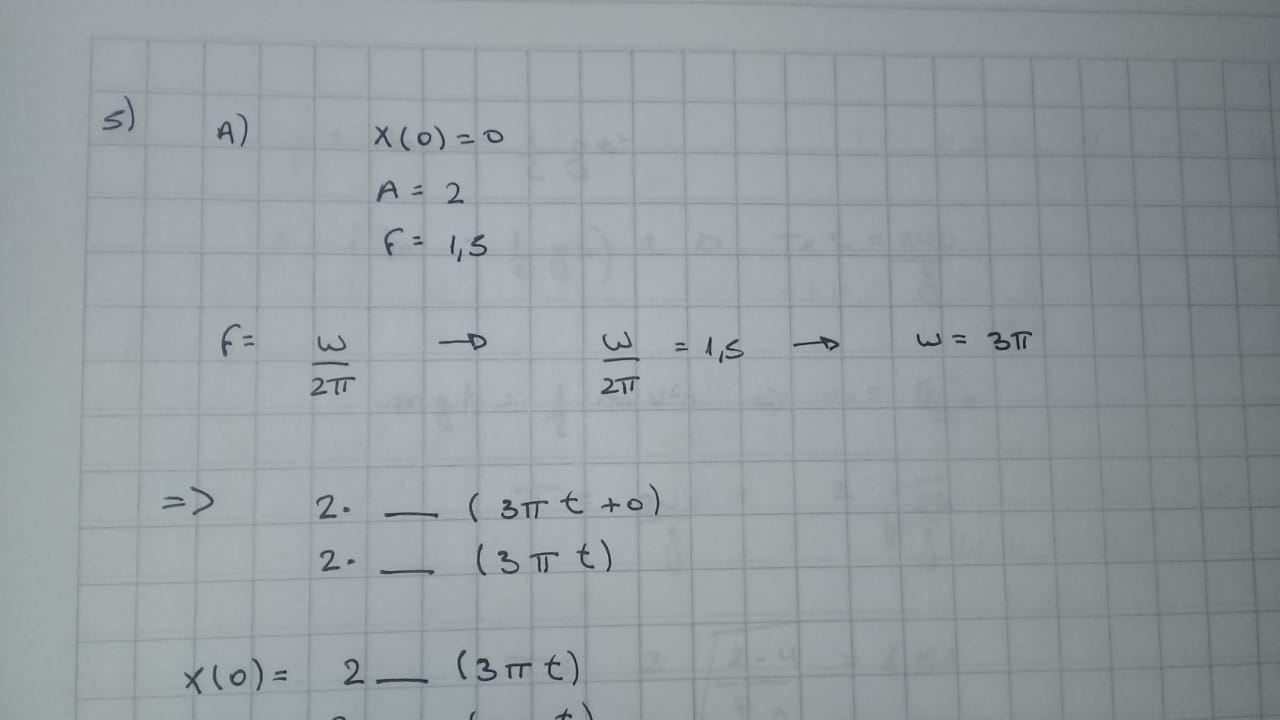 5) A) x(0) = 0
A = 2
F = 1,5
F = ω/2π → ω/2π = 1,5 → ω = 3π
=> 2. __ (3πt+0)
2. __ (3πt)
x(0) = 2 __ (3πt)